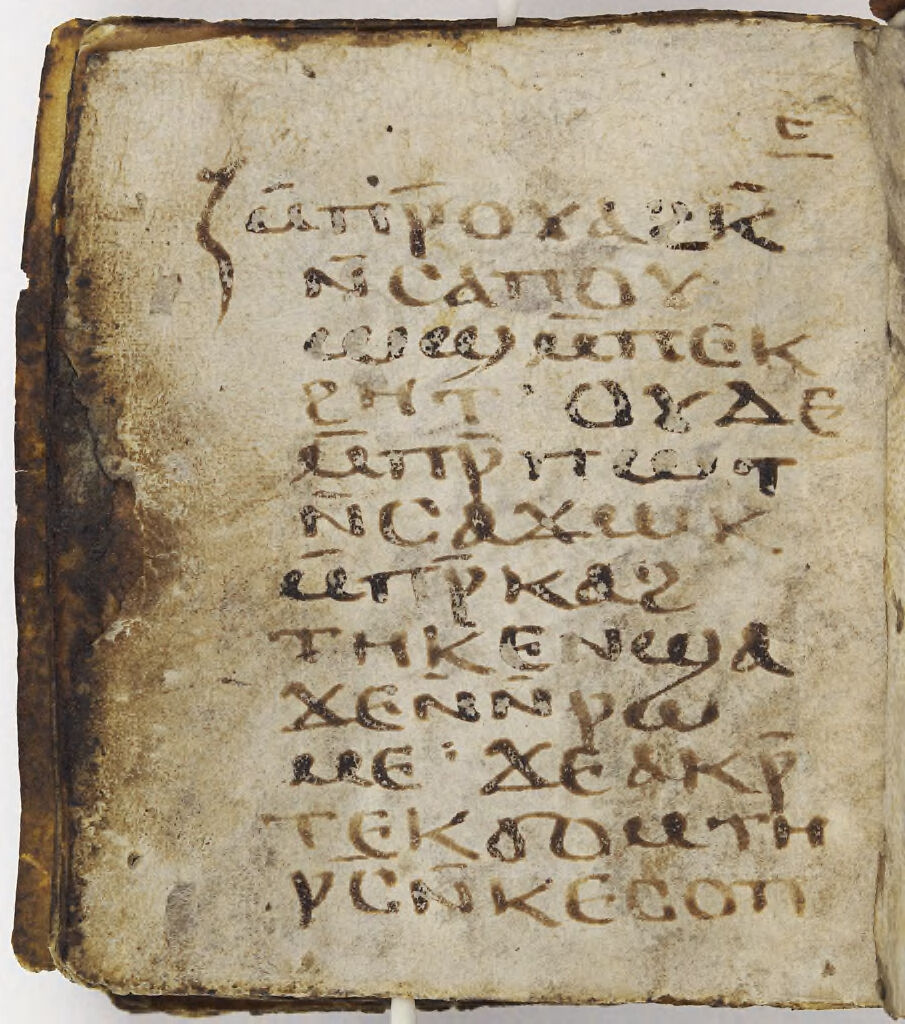 ⲉ
ⲙ̄ⲡⲣ̄ⲟⲩⲁϩⲕ̄
ⲛ̄ⲥⲁⲡⲟⲩ
ⲱϣⲙ̄ⲡⲉⲕ
ϩⲏⲧ · ⲟⲩⲇⲉ
ⲙ̄ⲡⲣ̄ⲡⲱⲧ
ⲛ̄ⲥⲁϫⲱⲕ
ⲙ̄ⲡⲣ̄ⲕⲁϩ
ⲧⲏⲕⲉⲛϣⲁ
ϫⲉⲛ̄ⲛ̄ⲣⲱ
ⲙⲉ · ϫⲉⲁⲕⲣ̄
ⲧⲉⲕϭⲟⲙⲧⲏ
ⲣⲥ̄ⲛ̄ⲕⲉⲥⲟⲡ